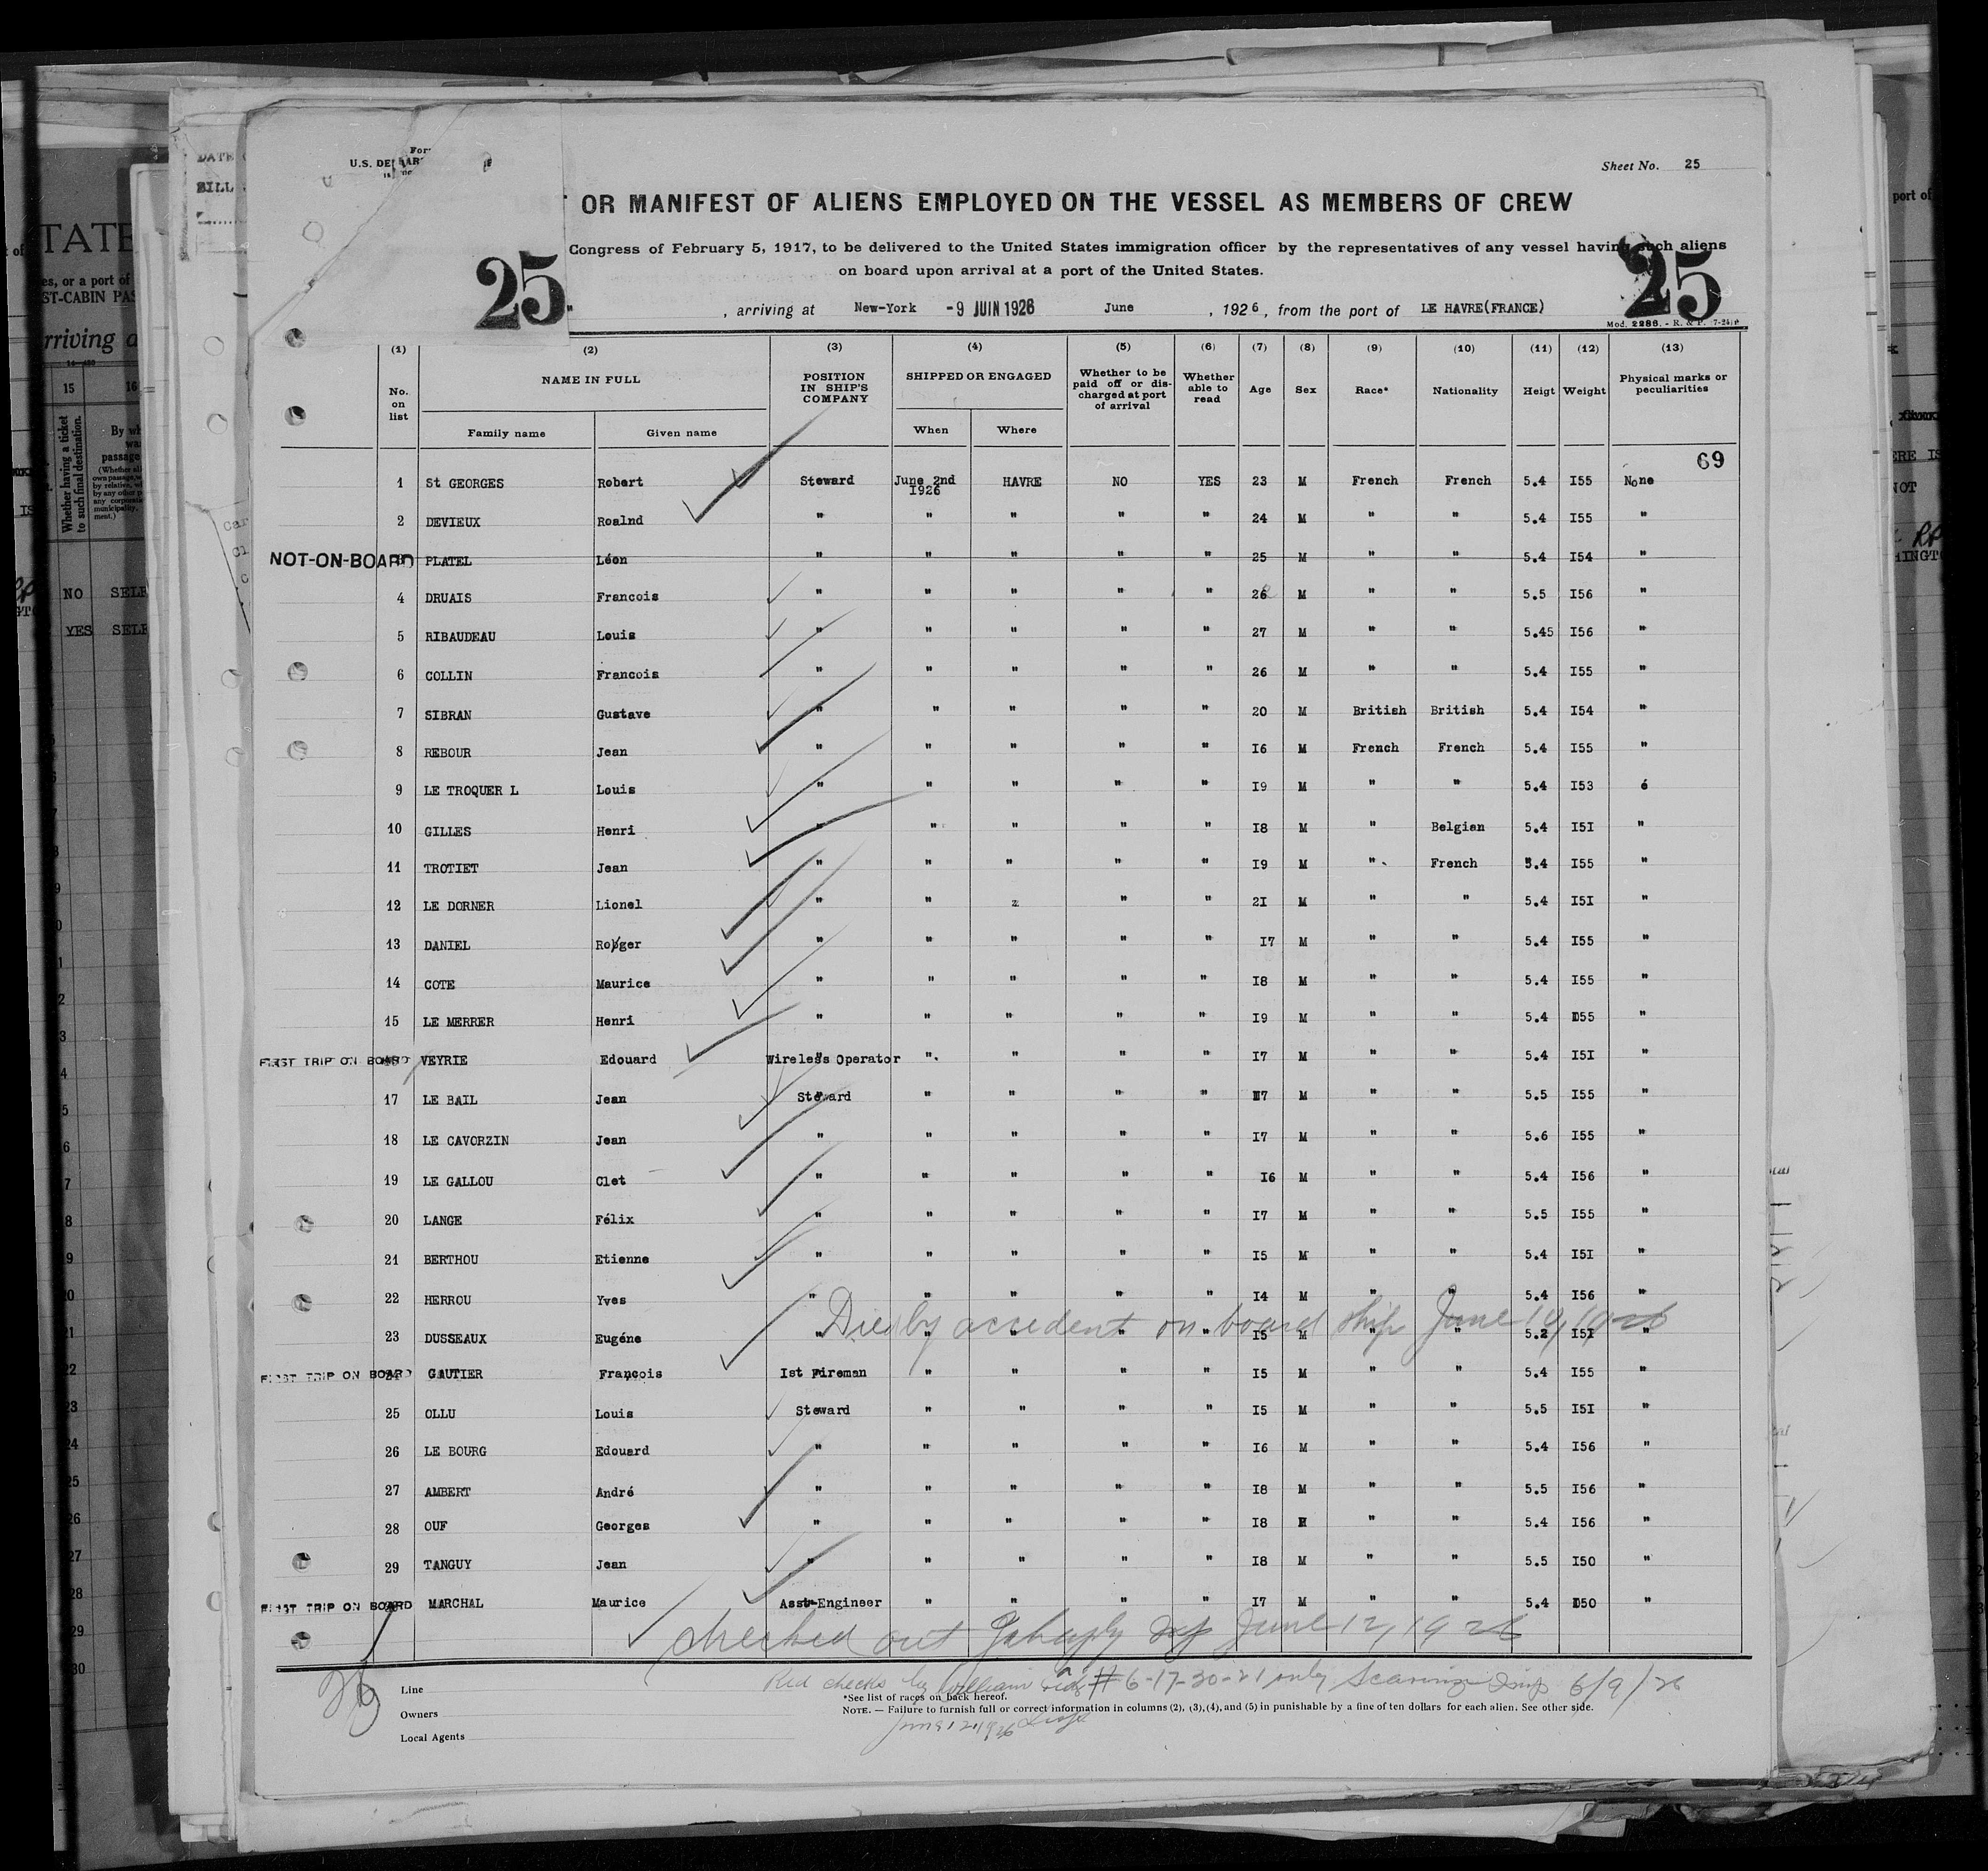 U.S. DE
Sheet No. 25
OR MANIFEST OF ALIENS EMPLOYED ON THE VESSEL AS MEMBERS OF CREW
Congress of February 5, 1917, to be delivered to the United States immigration officer by the representatives of any vessel having such aliens
on board upon arrival at a port of the United States.
25 25
, arriving at New-York -9 JUIN 1926 June , 1926, from the port of LE HAVRE(FRANCE)
Mod. 2286. - R. & P.
(1) (2) (3) (4) (5) (6) (7) (8) (9) (10) (11) (12) (13)
No. on list NAME IN FULL Family name Given name POSITION IN SHIP'S COMPANY SHIPPED OR ENGAGED When Where Whether to be paid off or discharged at port of arrival Whether able to read Age Sex Race* Nationality Heigt Weight Physical marks or peculiarities
69
1 St GEORGES Robert Steward June 2nd 1926 HAVRE NO YES 23 M French French 5.4 I55 None
2 DEVIEUX Roalnd " " " " " 24 M " " 5.4 I55 "
NOT-ON-BOARD PLATEL Léon " " " " " 25 M " " 5.4 I54 "
4 DRUAIS Francois " " " " " 26 M " " 5.5 I56 "
5 RIBAUDEAU Louis " " " " " 27 M " " 5.45 I56 "
6 COLLIN Francois " " " " " 26 M " " 5.4 I55 "
7 SIBRAN Gustave " " " " " 20 M British British 5.4 I54 "
8 REBOUR Jean " " " " " I6 M French French 5.4 I55 "
9 LE TROQUER L Louis " " " " " I9 M " " 5.4 I53 é
10 GILLES Henri " " " " " I8 M " Belgian 5.4 I5I "
11 TROTIET Jean " " " " " I9 M " French 5.4 I55 "
12 LE DORNER Lionel " " z " " 2I M " " 5.4 I5I "
13 DANIEL Roger " " " " " I7 M " " 5.4 I55 "
14 COTE Maurice " " " " " I8 M " " 5.4 I55 "
15 LE MERRER Henri " " " " " I9 M " " 5.4 I55 "
FIRST TRIP ON BOARD VEYRIE Edouard Wireless Operator " " " " I7 M " " 5.4 I5I "
17 LE BAIL Jean Steward " " " " I7 M " " 5.5 I55 "
18 LE CAVORZIN Jean " " " " " I7 M " " 5.6 I55 "
19 LE GALLOU Clet " " " " " I6 M " " 5.4 I56 "
20 LANGE Félix " " " " " I7 M " " 5.5 I55 "
21 BERTHOU Etienne " " " " " I5 M " " 5.4 I5I "
22 HERROU Yves " " " " " I4 M " " 5.4 I56 "
Died by accident on board ship June 10, 1926
23 DUSSEAUX Eugéne " " " " " I5 M " " 5.2 I5I "
FIRST TRIP ON BOARD GAUTIER François Ist Fireman " " " " I5 M " " 5.4 I55 "
25 OLLU Louis Steward " " " " I5 M " " 5.5 I5I "
26 LE BOURG Edouard " " " " " I6 M " " 5.4 I56 "
27 AMBERT André " " " " " I8 M " " 5.5 I56 "
28 OUF Georges " " " " " I8 M " " 5.4 I56 "
29 TANGUY Jean " " " " " I8 M " " 5.5 I50 "
FIRST TRIP ON BOARD MARCHAL Maurice Asst-Engineer " " " " I7 M " " 5.4 I50 "
checked out June 12, 1926
Red checks by William # 6-17-30-21 only 6/9/26
Line
*See list of races on back hereof.
Owners
NOTE. — Failure to furnish full or correct information in columns (2), (3), (4), and (5) in punishable by a fine of ten dollars for each alien. See other side.
June 12 1926
Local Agents